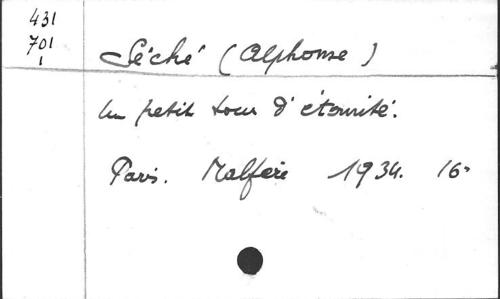 431
701
1
Séché (Alphonse)
Un petit tour d'éternité.
Paris. Malfère 1934. 16°